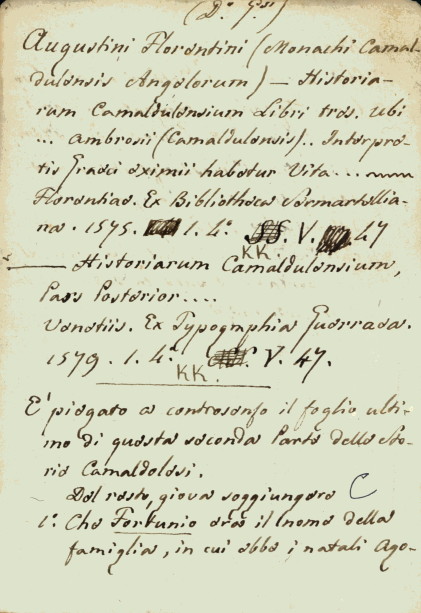 (D. G.)
Augustini Florentini (Monachi Camal-
dulensis Angelorum) — Historia-
rum Camaldulensium Libri tres. Ubi
... Ambrosii (Camaldulensis).. Interpre-
tis Graeci eximii habetur Vita...
Florentiae. Ex Bibliotheca Sermartellia-
na. 1575. 1. 4.° KK. V. 47
— Historiarum Camaldulensium,
Pars Posterior....
Venetiis. Ex Typographia Guerraea.
1579. 1. 4.° KK. V. 47.
E' piegato a controsenso il foglio ulti-
mo di questa seconda Parte delle Sto-
rie Camaldolesi.
Del resto, giova soggiungere C
1.° Che Fortunio era il nome della
famiglia, in cui ebbe i natali Ago-